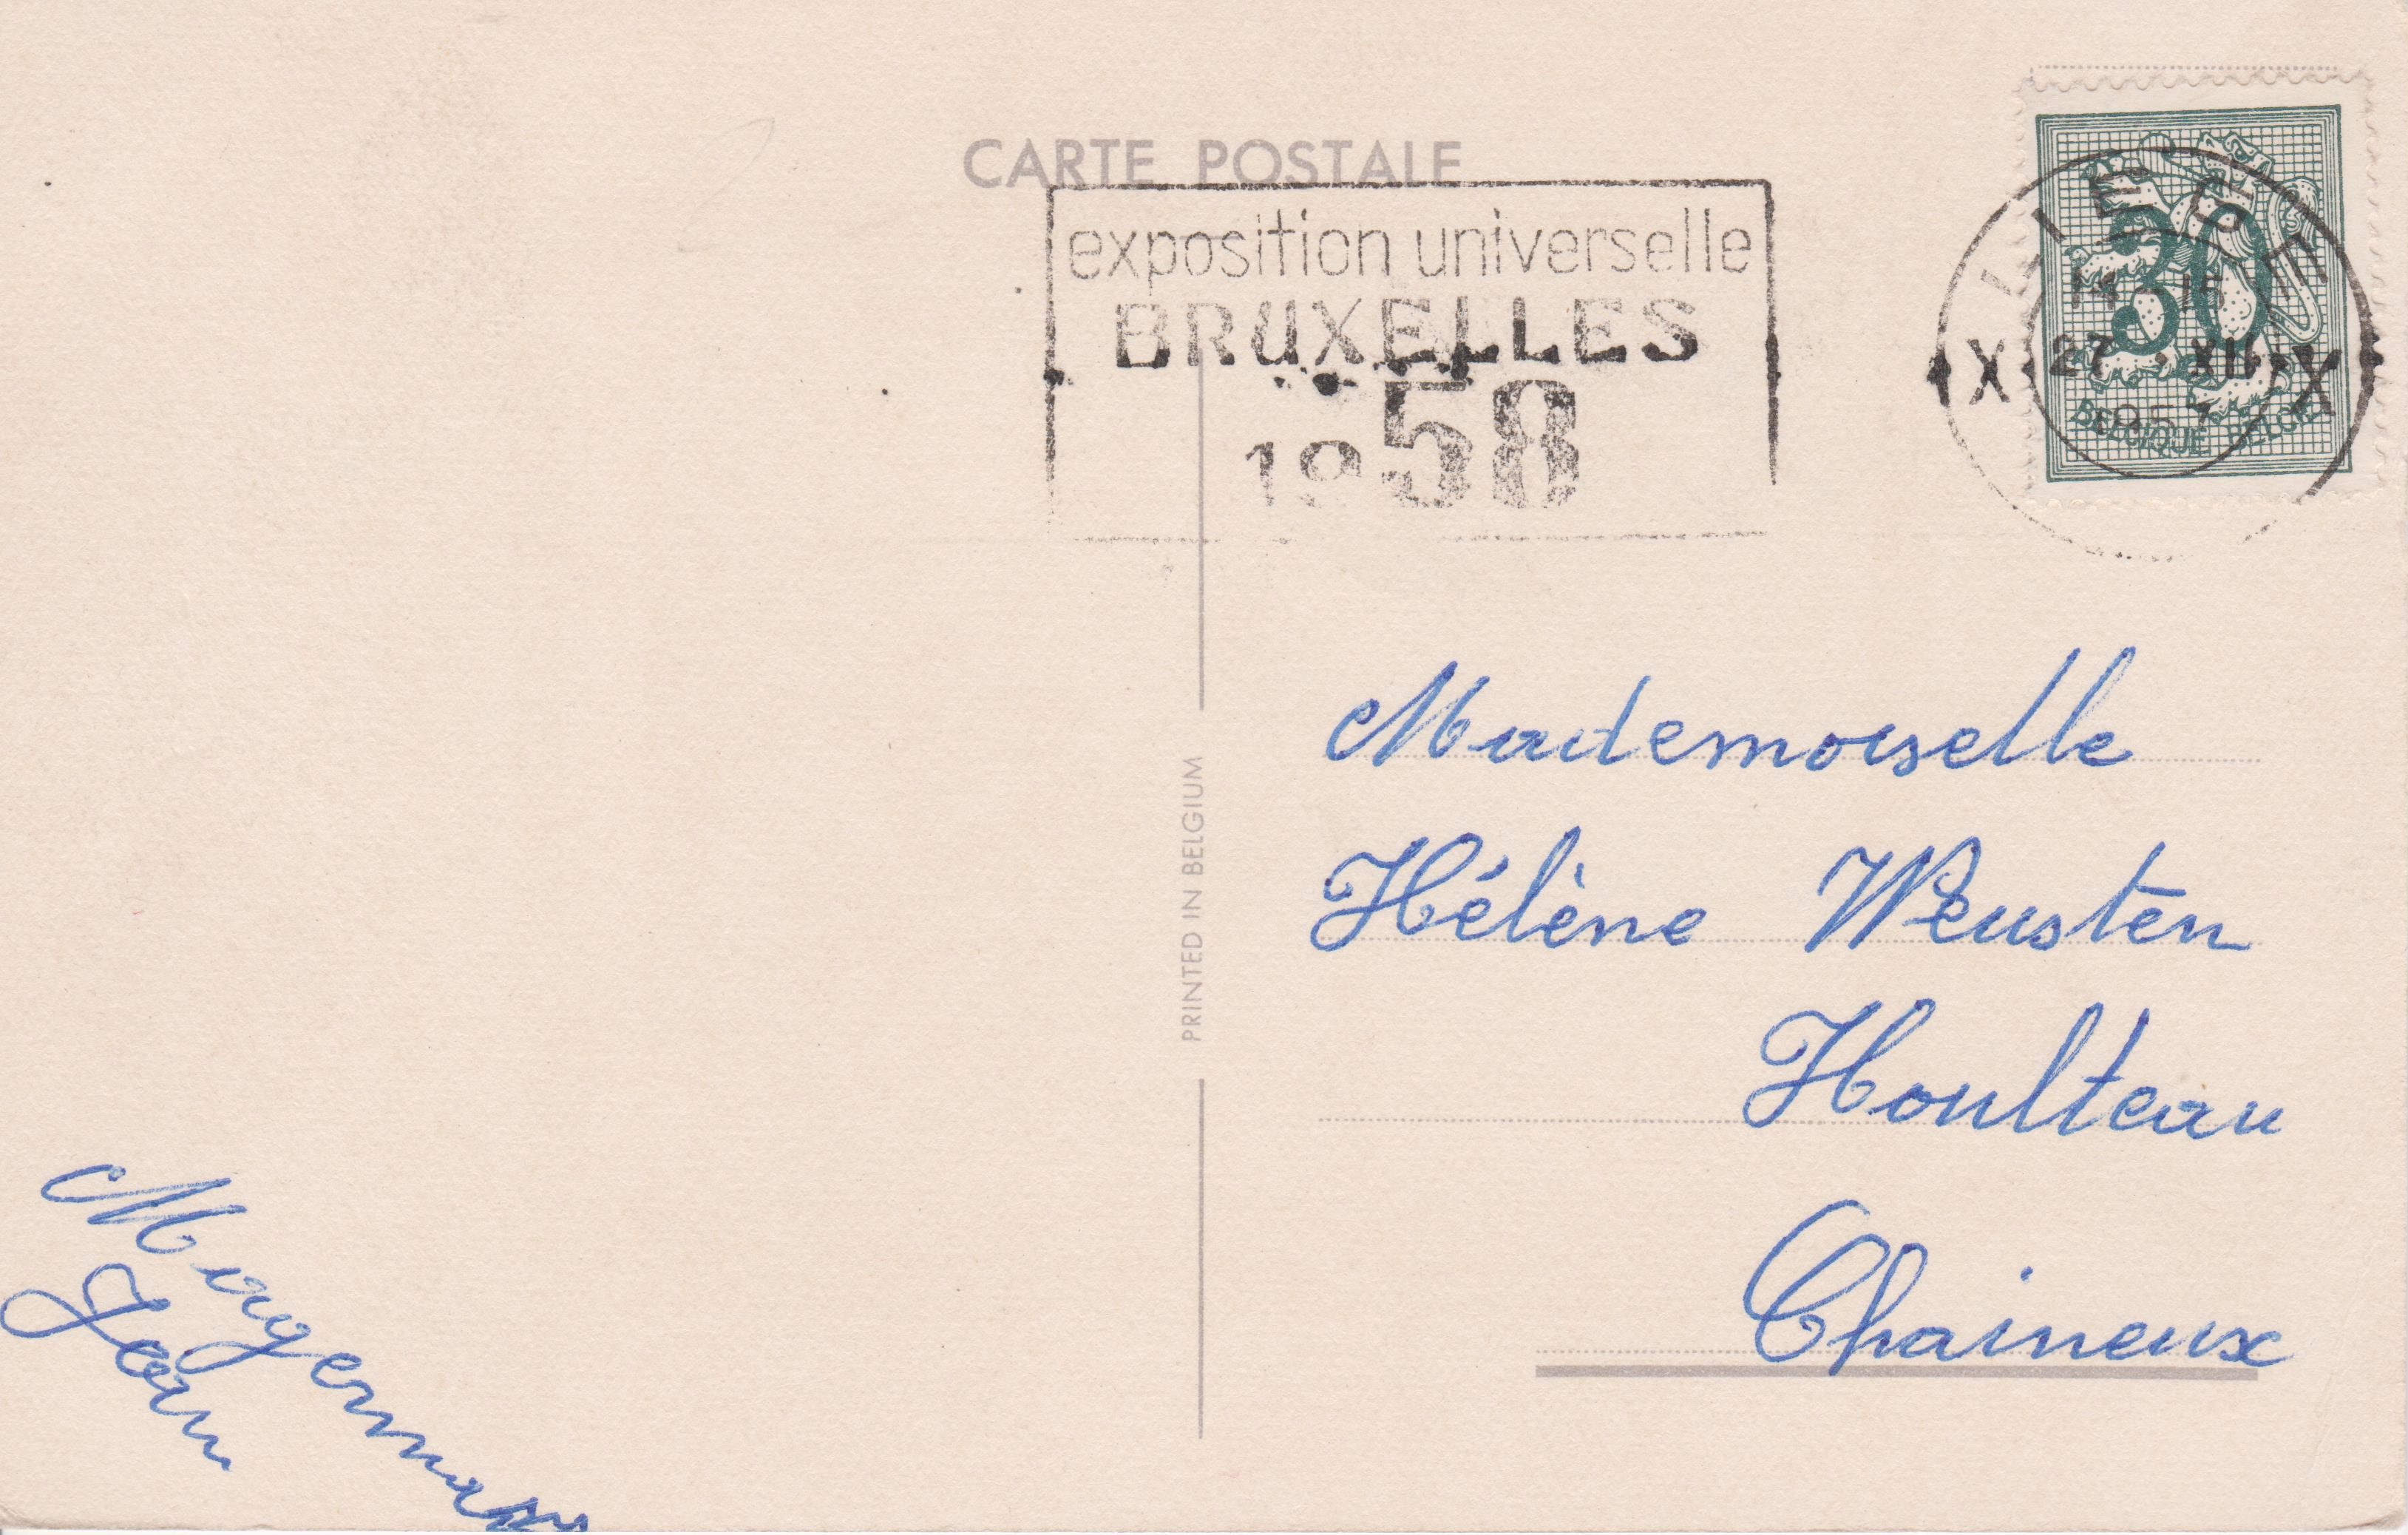 CARTE POSTALE
exposition universelle
BRUXELLES
1958
LIEGE
X 27 XII X
195
30
BELGIQUE BELGIE
PRINTED IN BELGIUM
Mademoiselle
Hélène Weusten
Houlteau
Chaineux
Jean